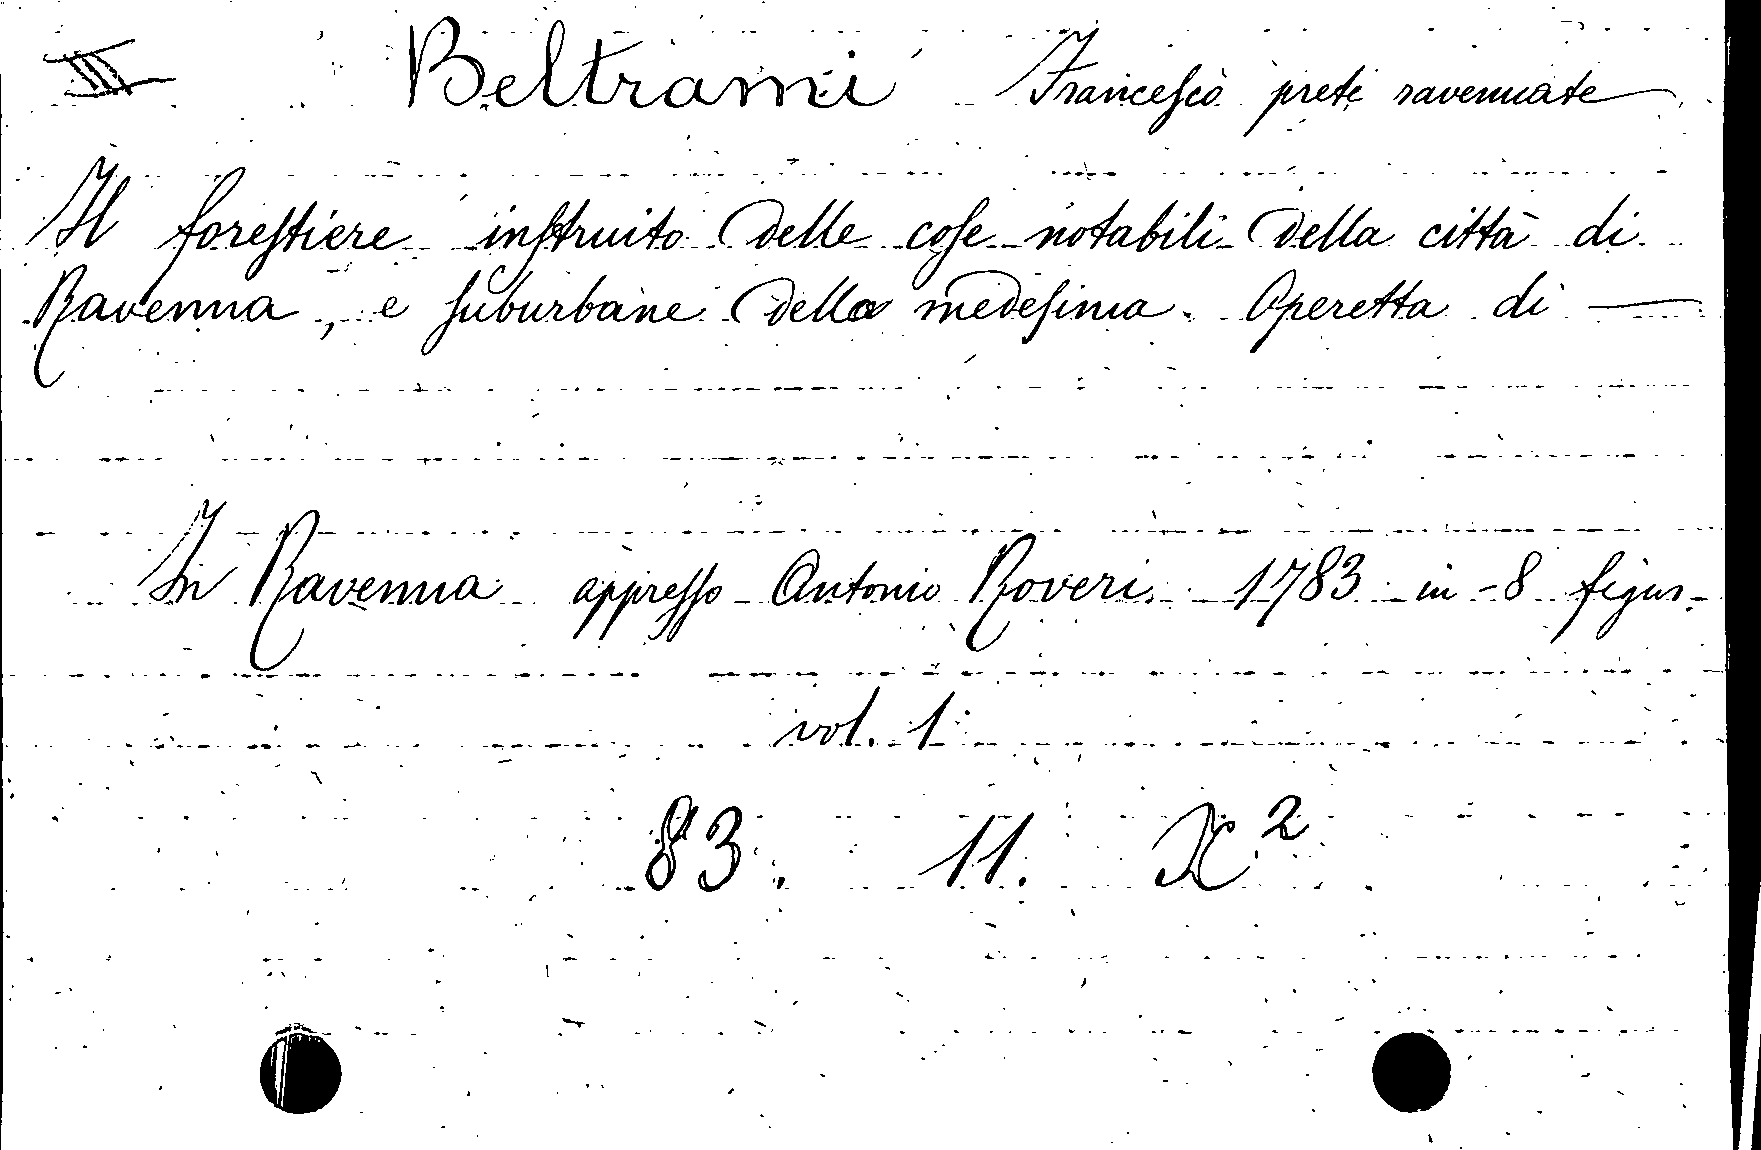 III Beltrami Francesco prete ravennate
Il forestiere instruito delle cose notabili della città di
Ravenna, e suburbane della medesima. Operetta di —
In Ravenna appresso Antonio Roveri. 1783 in-8 figur.
vol. 1
83. 11. X²